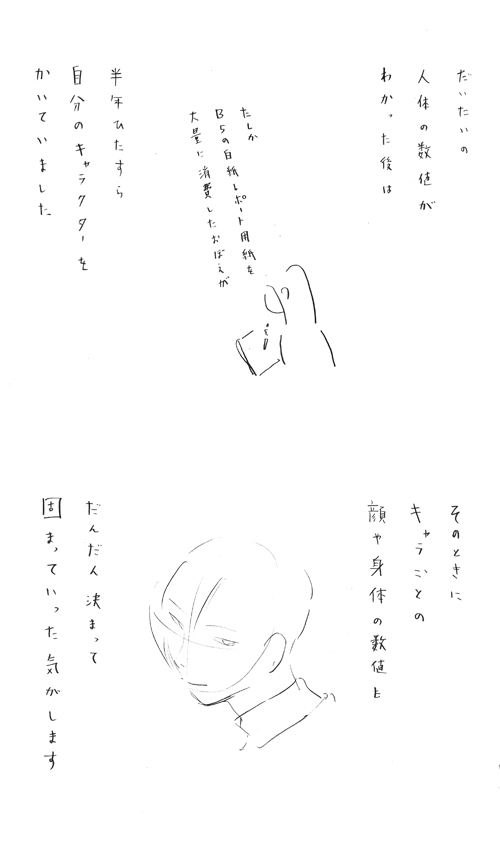 だいたいの
人体の数値が
わかった後は
たしか
B5の白紙レポート用紙を
大量に消費したおぼえが
半年ひたすら
自分のキャラクターを
かいていました
そのときに
キャラごとの
顔や身体の数値も
だんだん決まって
固まっていった気がします